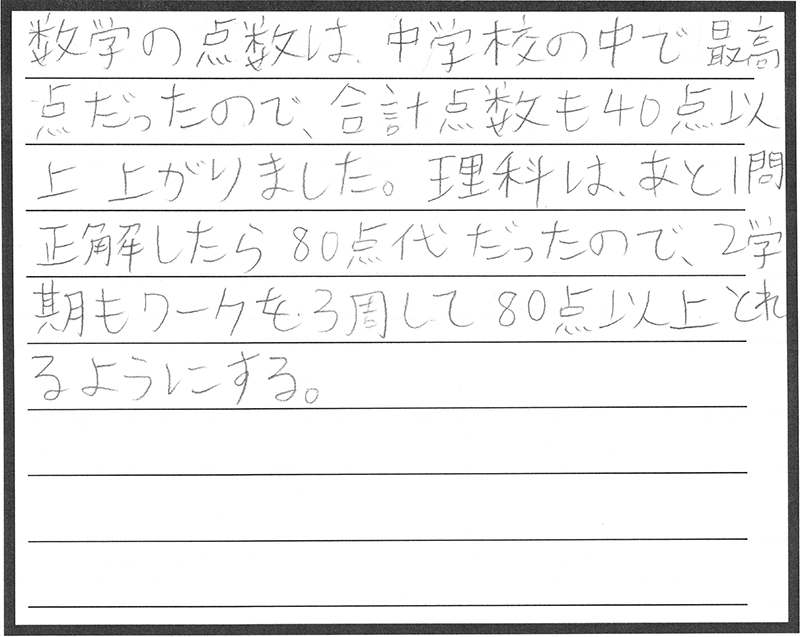 数学の点数は、中学校の中で最高
点だったので、合計点数も40点以
上上がりました。理科は、あと1問
正解したら80点代だったので、2学
期もワークを3周して80点以上とれ
るようにする。